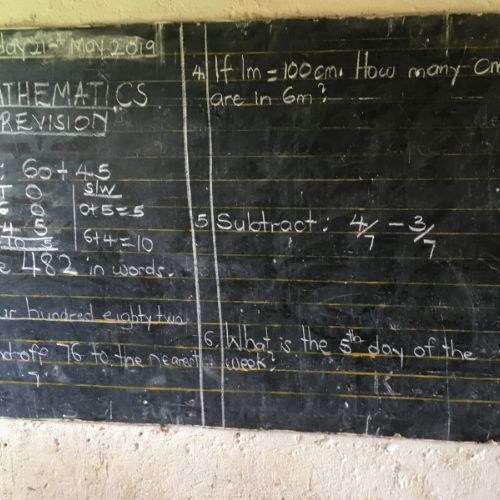 day 21st May 2019
MATHEMATICS
REVISION
: 60 + 45
T O
6 0
4 5
10 5
S/W
0+5=5
6+4=10
482 in words.
hundred eighty two
off 76 to the nearest
4. If 1m = 100cm. How many cm
are in 6m?
5. Subtract: 4/7 - 3/7
6. What is the 5th day of the
week?